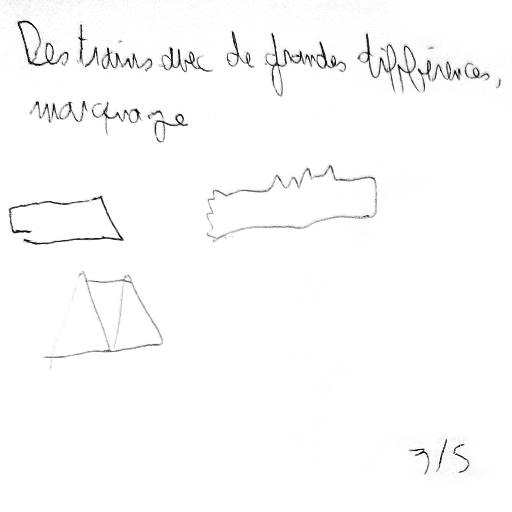 Des trains avec de grandes différences,
marquage
3/5